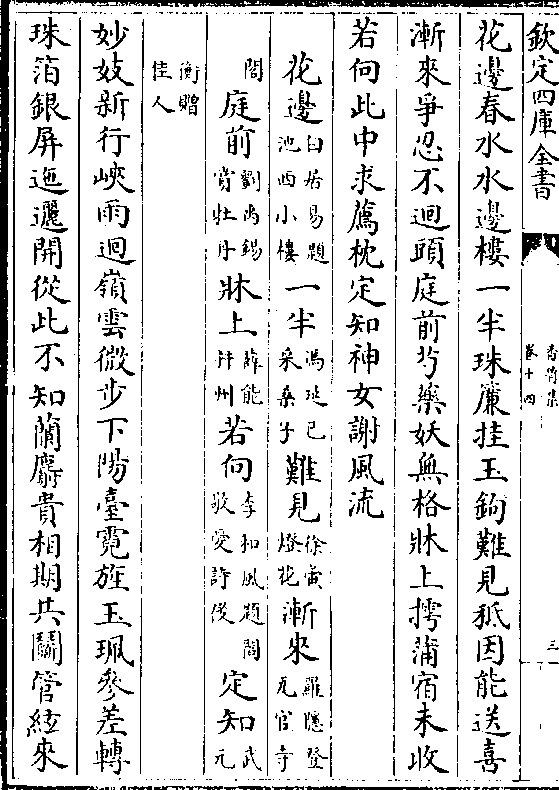 欽定四庫全書
香屑集
卷十四
三
花邊春水水邊樓一半珠簾挂玉鉤難見秪因能送喜
漸來爭忍不迴頭庭前芍藥妖無格牀上摴蒲宿未收
若向此中求薦枕定知神女謝風流
花邊白居易題池西小樓一半馮延巳采桑子難見徐夤燈花漸來羅隱登瓦官寺
閣庭前劉禹錫賞牡丹牀上薛能幷州若向李和風題閻敬愛詩後定知武元
衡贈佳人
妙妓新行峽雨迴嶺雲微步下陽臺霓旌玉珮參差轉
珠箔銀屏迤邐開從此不知蘭麝貴相期共鬬管絃來